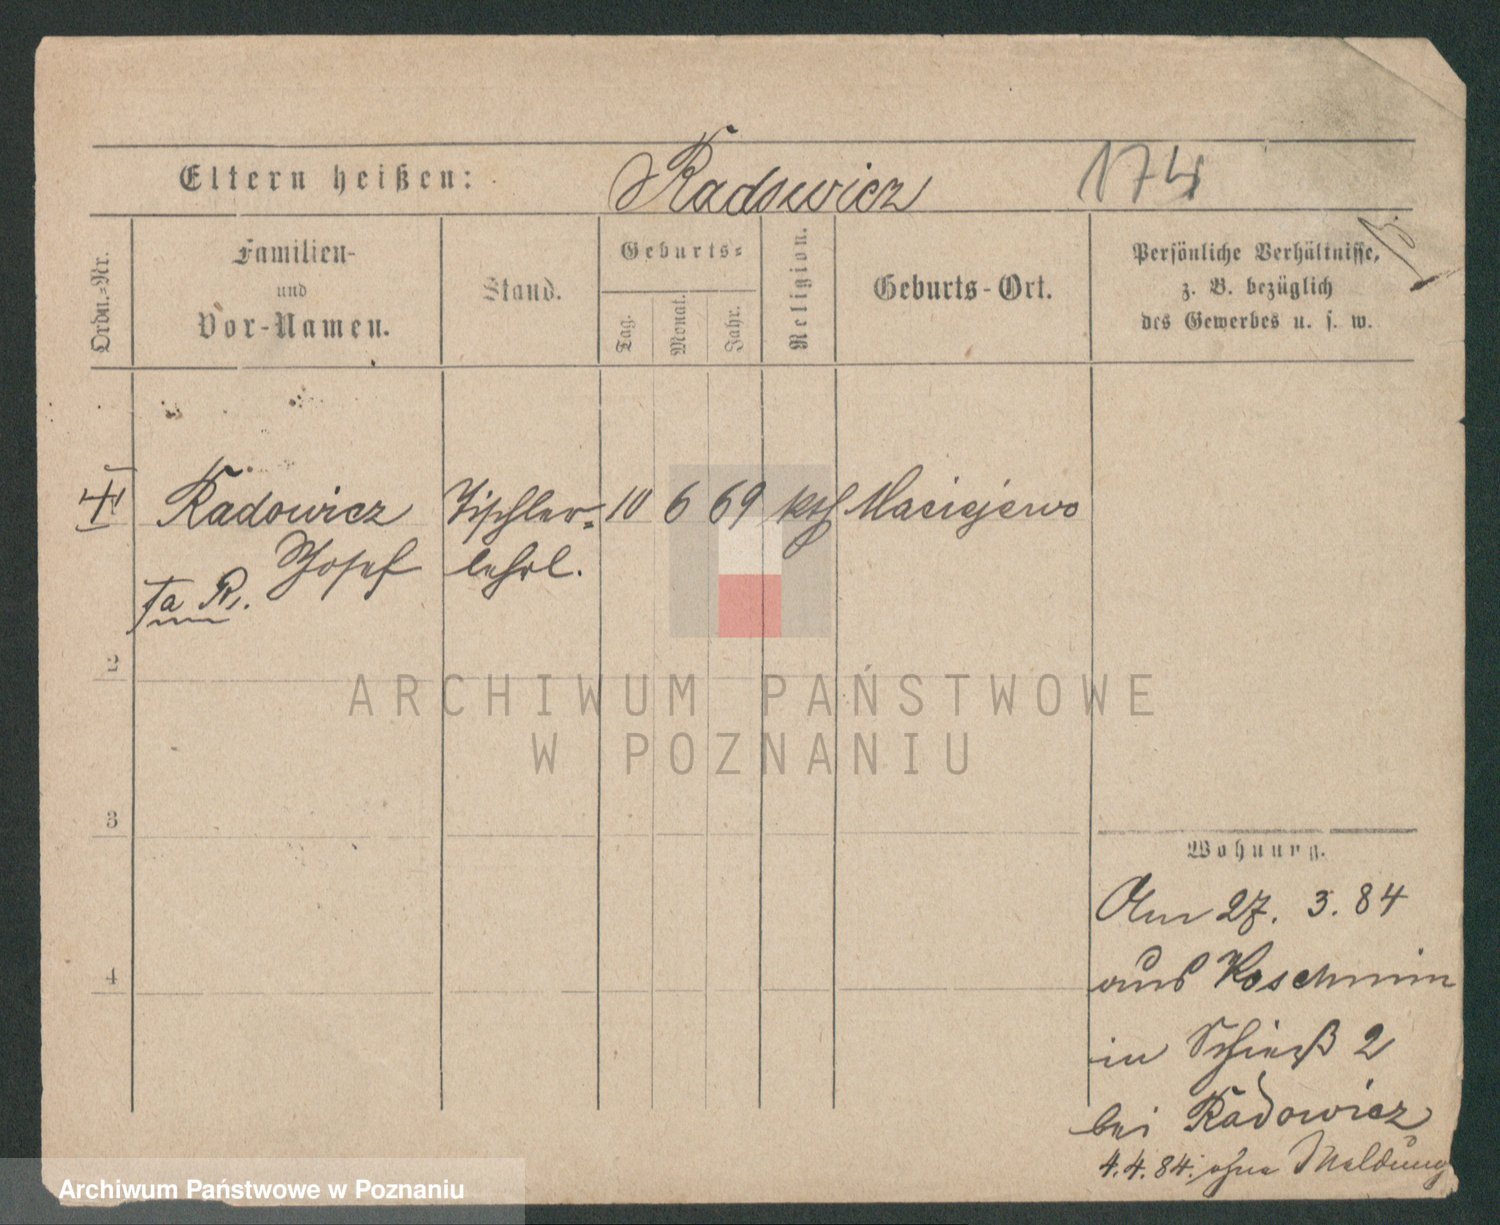 Eltern heißen: Radowicz 174
Ordn.=Nr.
Familien-
und
Vor-Namen.
Stand.
Geburts=
Tag.
Monat.
Jahr.
Religion.
Geburts-Ort.
Persönliche Verhältnisse,
z. B. bezüglich
des Gewerbes u. s. w.
Radowicz Tischler= 10 6 69 kth Maciejewo
Josef lehrl.
2
3
4
ARCHIWUM PAŃSTWOWE
W POZNANIU
Wohnung.
Am 27. 3. 84
aus Koschmin
in Schieß 2
bei Radowicz
4.4.84. ohne Meldung
Archiwum Państwowe w Poznaniu